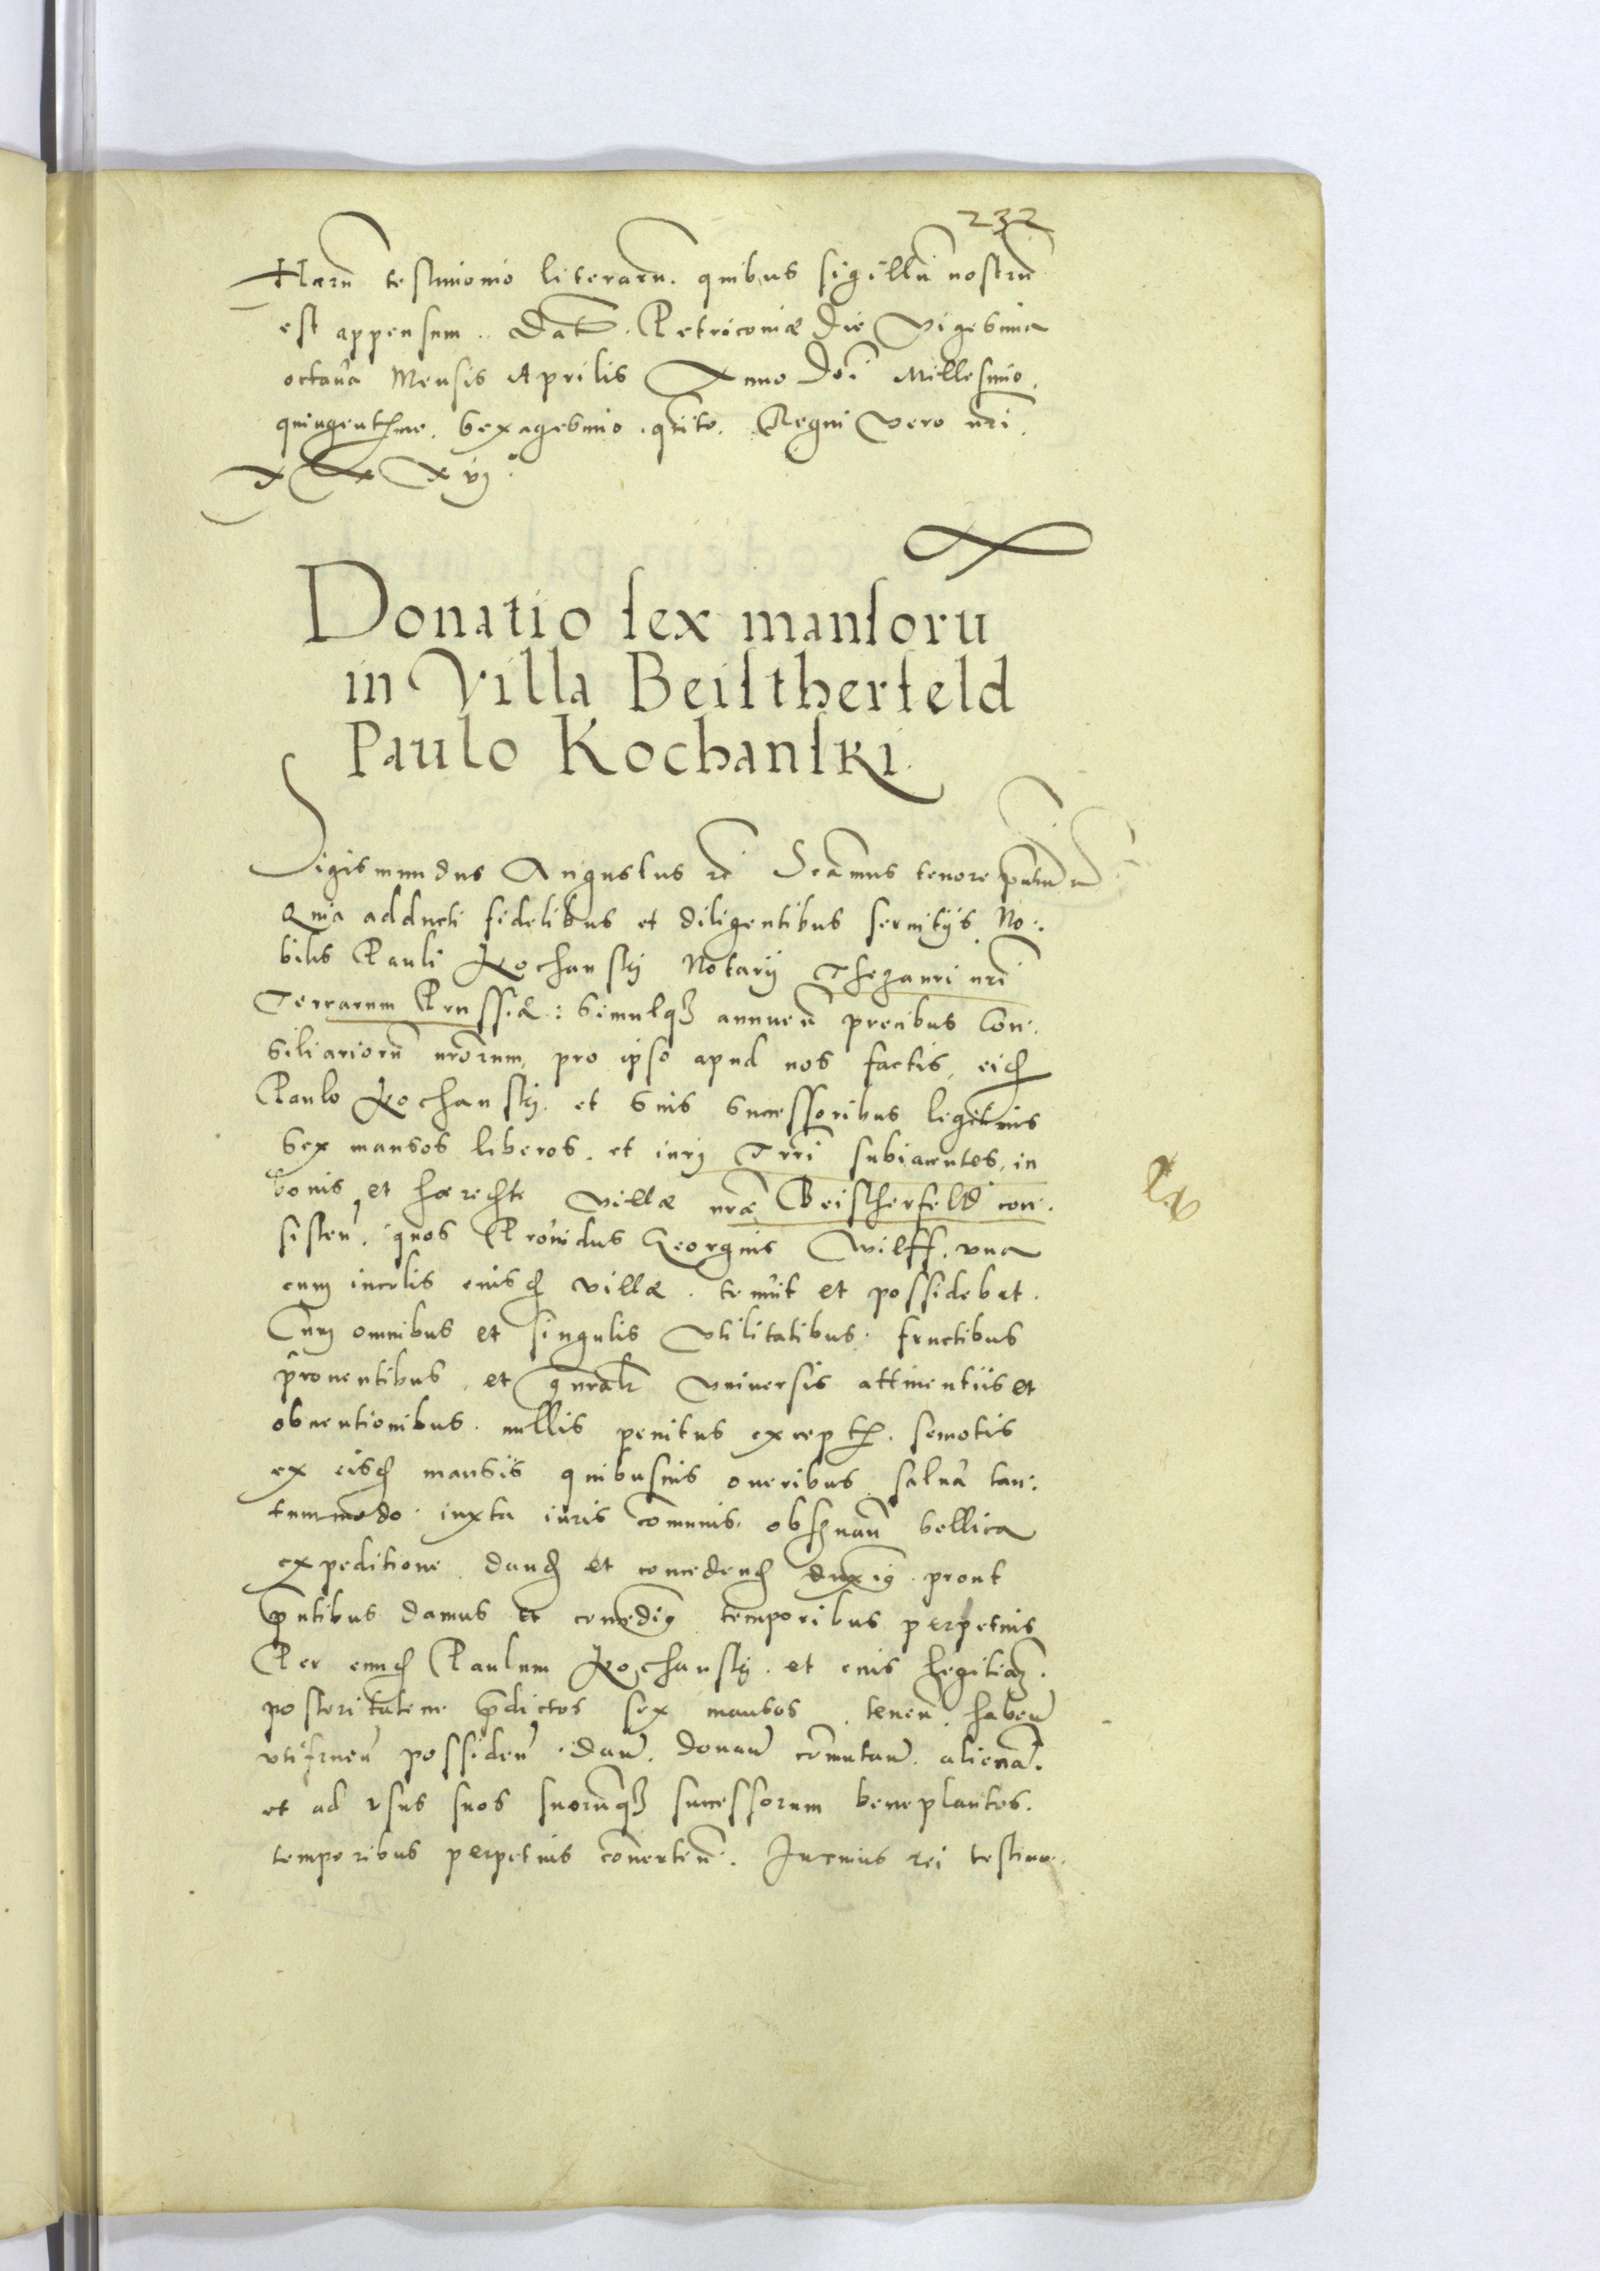 232
Harū testimonio literarū. quibus sigillū nostrū
est appensum. Dat̄. Petricouiæ Die vigesima
octaua Mensis Aprilis Anno Doī Millesimo.
quingentesimo. sexagesimo. qrīto. Regni vero nrī.
Donatio sex mansorū
in Villa Beistherfeld
Paulo Kochanski.
Sigismundus Augustus rc̄ Scām̄us tenore pn̄tiū
Quia adducti fidelibus et diligentibus seruitijs. No:
bilis Pauli Kochanskj Notarij Thezauri nrī
Terrarum Prussiæ: simulq3 annueñ precibus Con:
siliariorū nrōrum, pro ipso apud nos factis, eid̄
Paulo Kochanskj. et suis successoribus legitimis
sex mansos liberos. et iurj Trrī subiacentes, in
bonis et hærechte villæ nrǣ Beistherfeld con:
sisteñ. quos Prouidus Georgius Wilff. vna
cum incolis eiusd̄ villæ. tenuit et possidebat.
Cum omnibus et singulis vtilitatibus. fructibus
prouentibus. et gn̄ralr̄ vniuersis attinentiis et
obuentionibus. nullis penitus except̄. semotis
ex eisd̄ mansis quibusuis oneribus. salua tan:
tummodo. iuxta iuris com̄unis. obseruañ bellica
expeditione. dand̄ et concedend̄ duxim9. prout
pn̄tibus damus et concedim9 temporibus perpetuis
Per eund̄ Paulum Kochanskj. et eius legitiā.
posteritatem pdictos sex mansos. teneñ. habeñ
vtifrueñ possideñ. dañ. donañ com̄utañ. alienañ.
et ad vsus suos suorūq3 successorum beneplacitos.
temporibus perpetuis cōuerteñ. In cuius rei testimo.